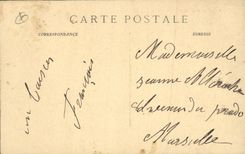 CARTE POSTALE
CORRESPONDANCE
ADRESSE
un baiser
François
Mademoiselle
Jeanne
Avenue du prado
Marseille